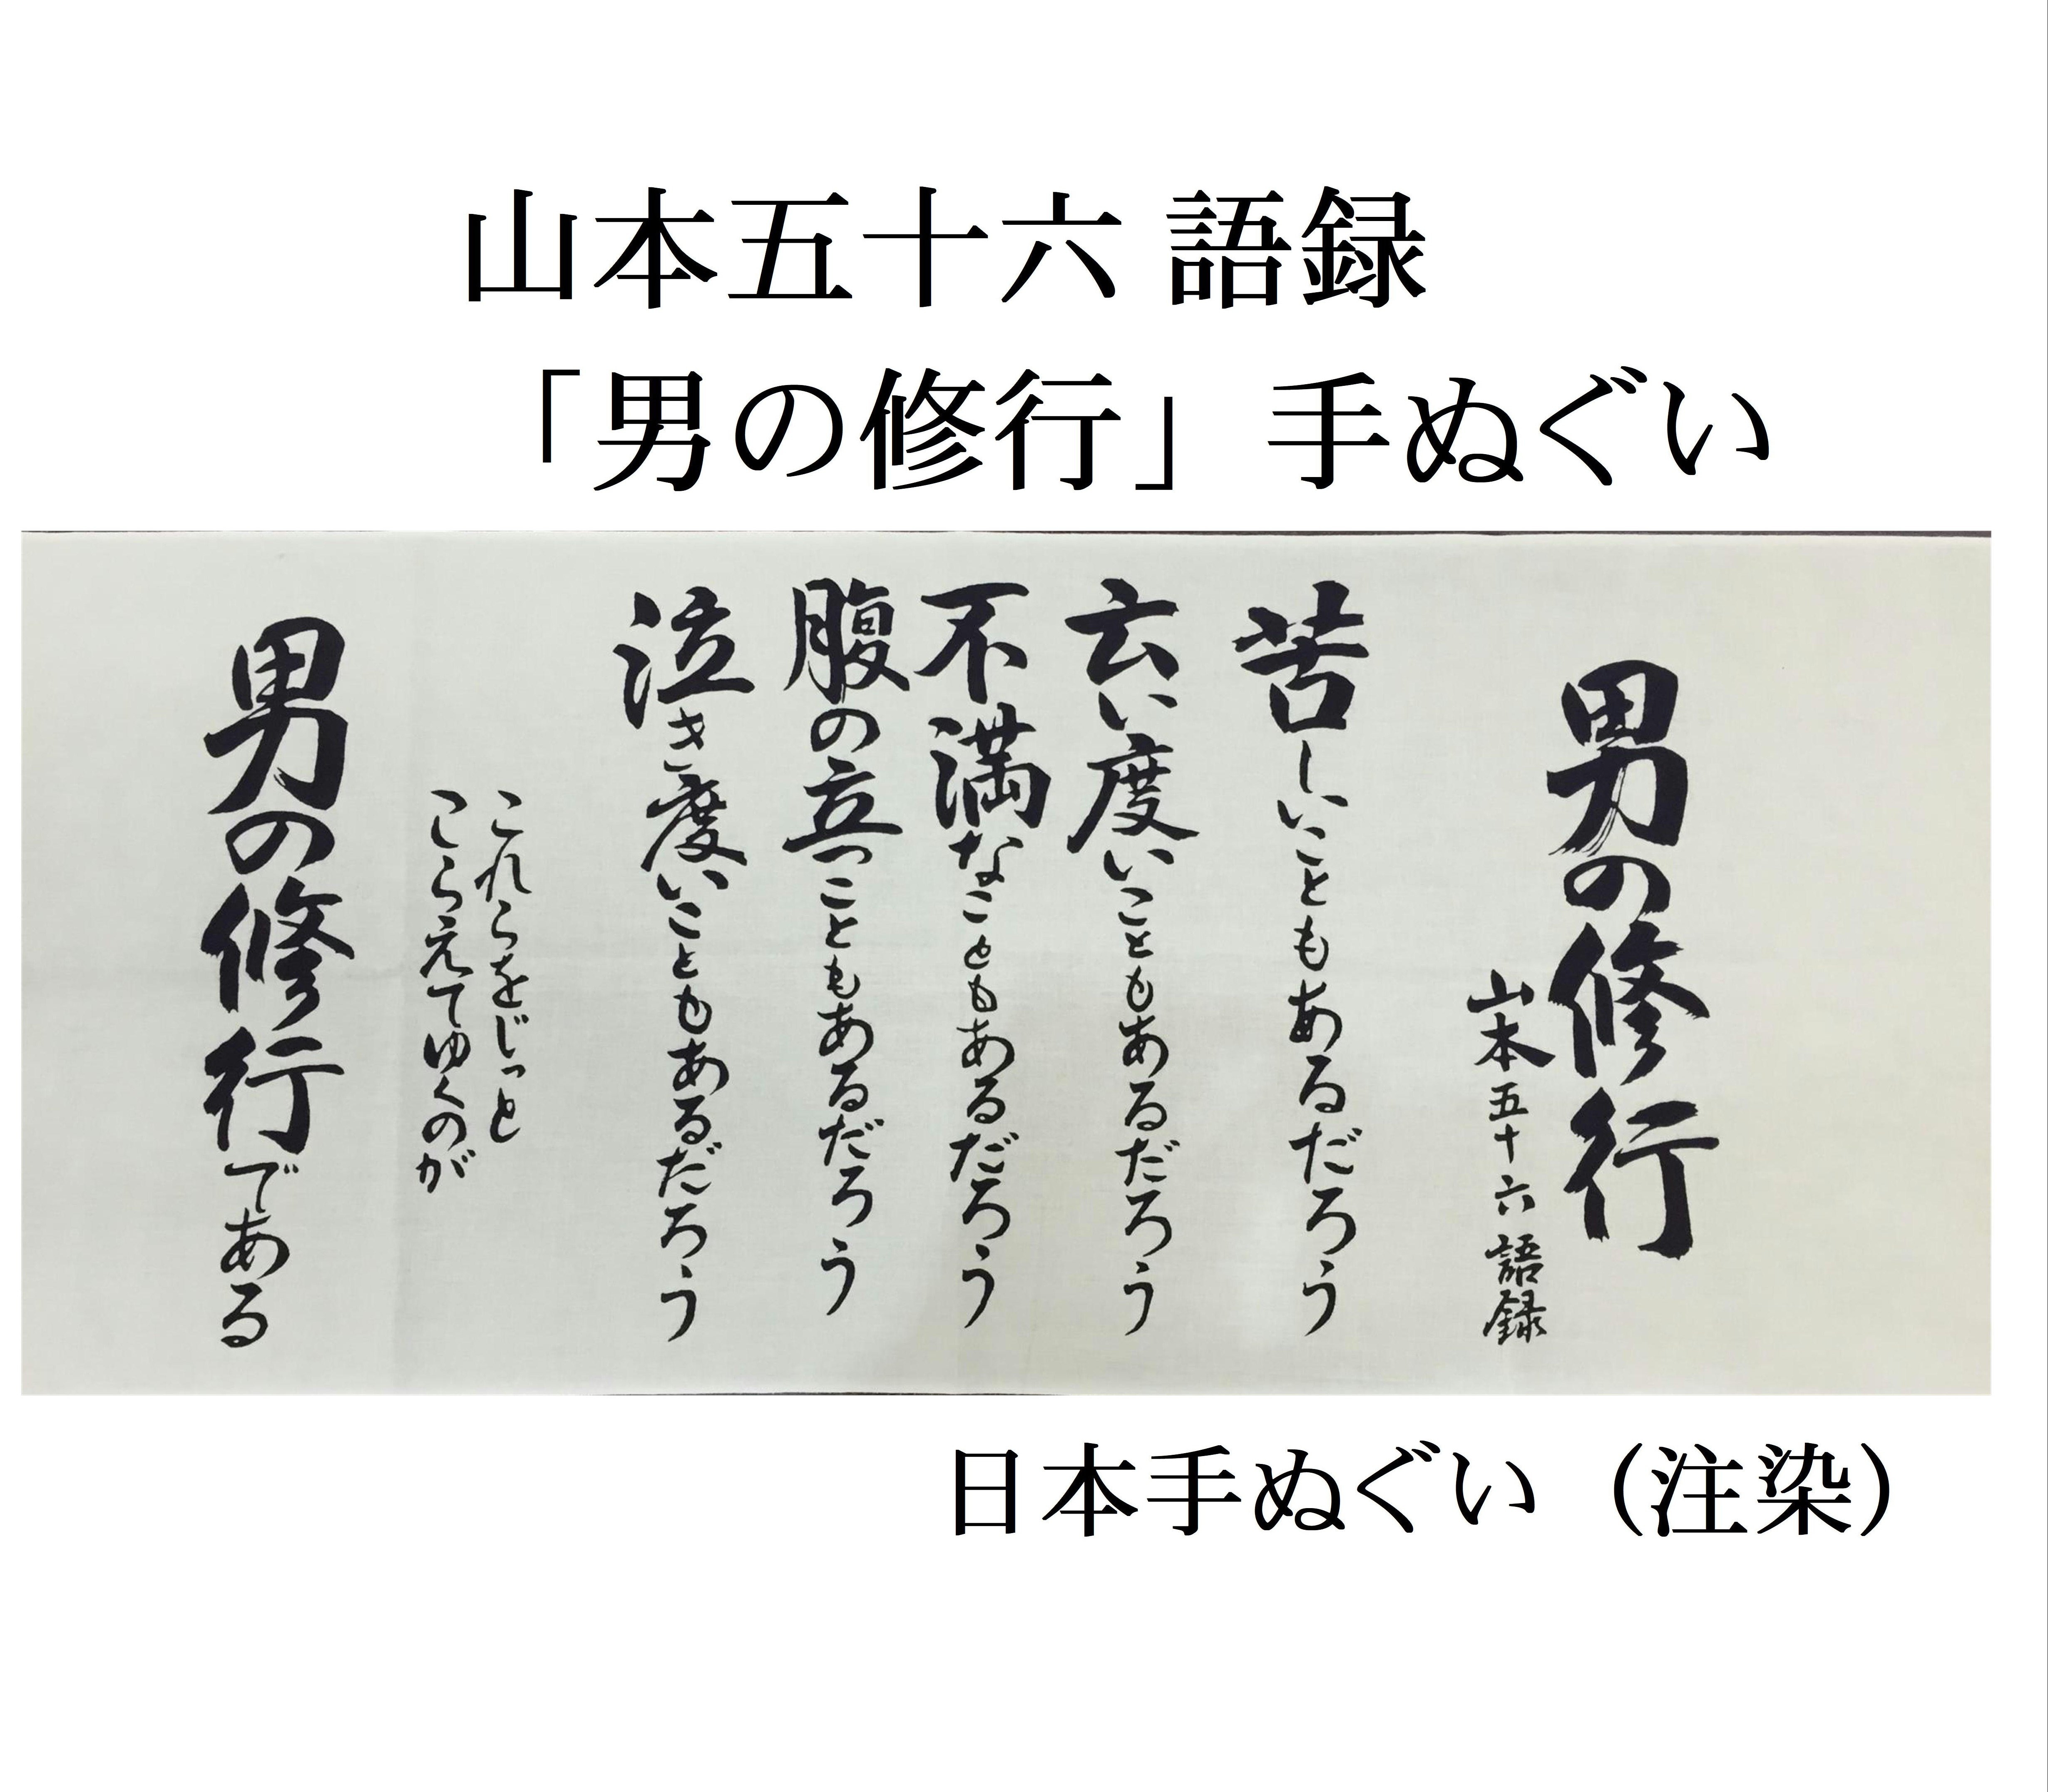 山本五十六 語録
「男の修行」 手ぬぐい
男の修行
山本五十六 語録
苦しいこともあるだろう
云い度いこともあるだろう
不満なこともあるだろう
腹の立つこともあるだろう
泣き度いこともあるだろう
これらをじっと
こらえてゆくのが
男の修行である
日本手ぬぐい (注染)